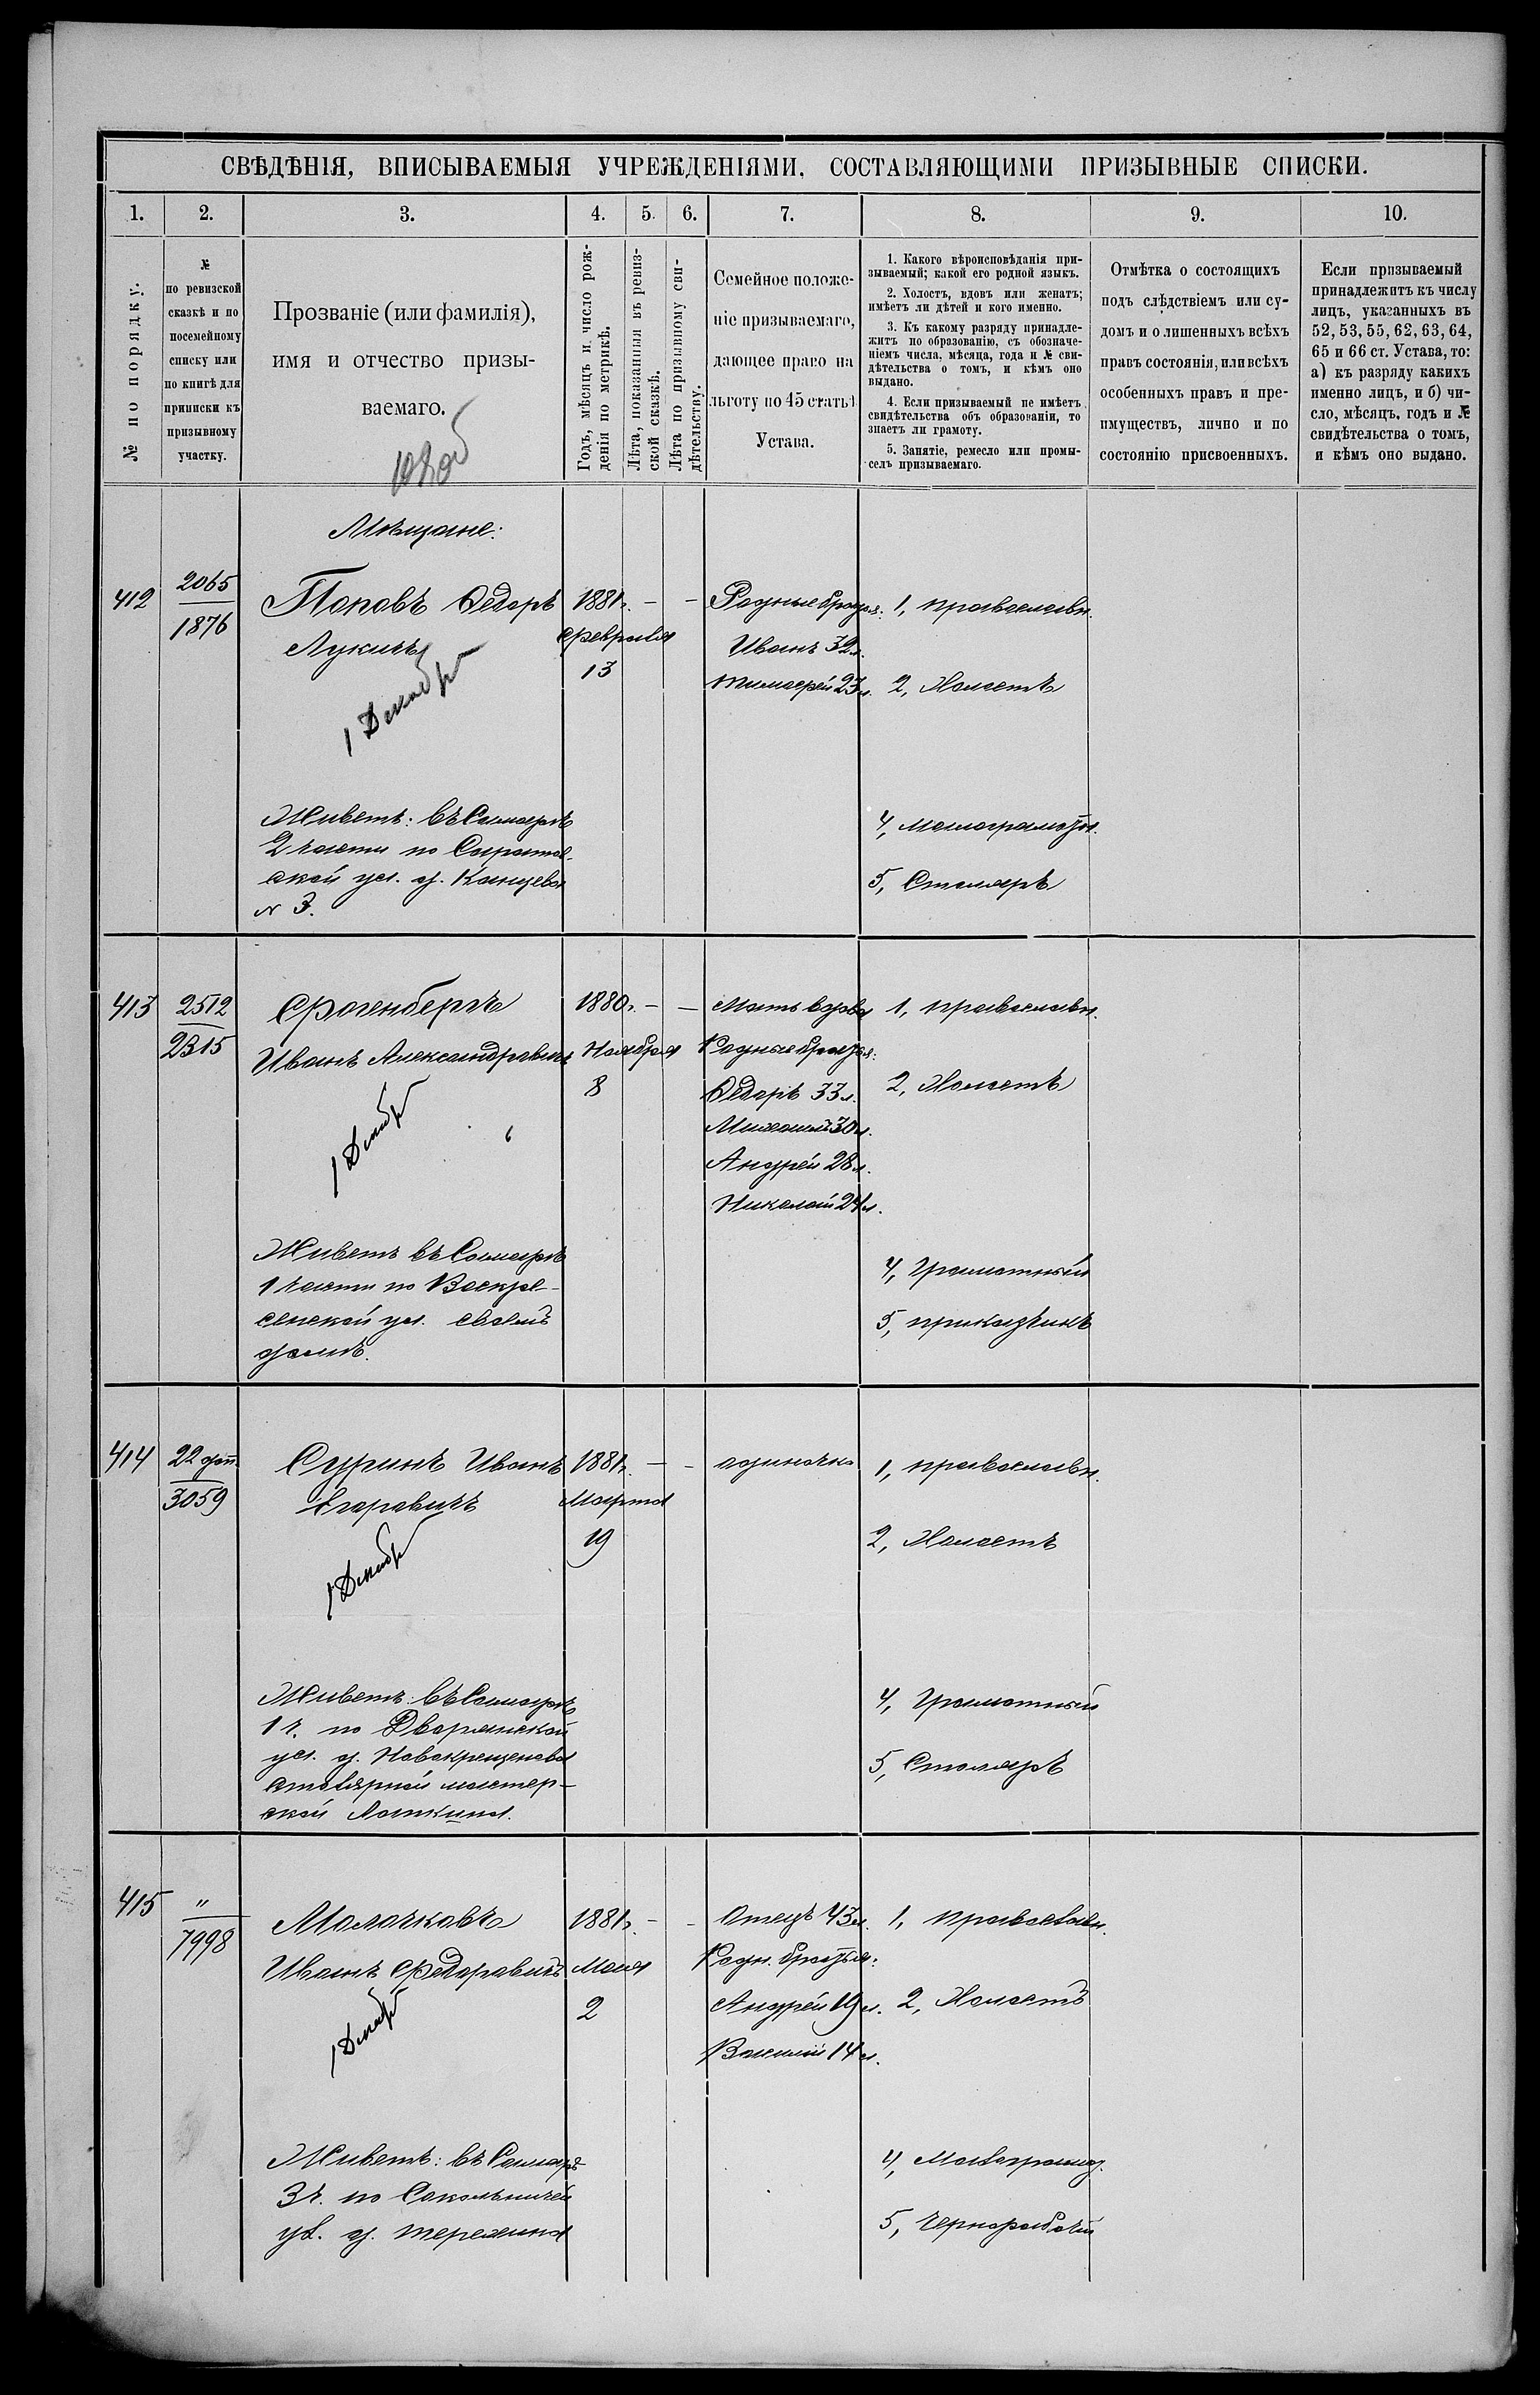 СВѢДѢНІЯ, ВПИСЫВАЕМЫЯ УЧРЕЖДЕНІЯМИ, СОСТАВЛЯЮЩИМИ ПРИЗЫВНЫЕ СПИСКИ.
1. 2. 3. 4. 5. 6. 7. 8. 9. 10.
№ по порядку.
№
по ревизской
сказкѣ и по
посемейному
списку или
по книгѣ для
приписки къ
призывному
участку.
Прозваніе (или фамилія),
имя и отчество призы-
ваемаго.
Годъ, мѣсяцъ и число рож-
денія по метрикѣ.
Лѣта, показанныя въ ревиз-
ской сказкѣ.
Лѣта по призывному сви-
дѣтельству.
Семейное положе-
ніе призываемаго,
дающее право на
льготу по 45 статьѣ
Устава.
1. Какого вѣроисповѣданія при-
зываемый; какой его родной языкъ.
2. Холостъ, вдовъ или женатъ;
имѣетъ ли дѣтей и кого именно.
3. Къ какому разряду принадле-
житъ по образованію, съ обозначе-
ніемъ числа, мѣсяца, года и № сви-
дѣтельства о томъ, и кѣмъ оно
выдано.
4. Если призываемый не имѣетъ
свидѣтельства объ образованіи, то
знаетъ ли грамоту.
5. Занятіе, ремесло или промы-
селъ призываемаго.
Отмѣтка о состоящихъ
подъ слѣдствіемъ или су-
домъ и о лишенныхъ всѣхъ
правъ состоянія, или всѣхъ
особенныхъ правъ и пре-
имуществъ, лично и по
состоянію присвоенныхъ.
Если призываемый
принадлежитъ къ числу
лицъ, указанныхъ въ
52, 53, 55, 62, 63, 64,
65 и 66 ст. Устава, то:
а) къ разряду какихъ
именно лицъ, и б) чи-
сло, мѣсяцъ, годъ и №
свидѣтельства о томъ,
и кѣмъ оно выдано.
Мѣщане:
412
2065
1876
Поповъ Ѳедоръ
Лукичъ
1 Декабр
Живетъ: въ Самарѣ
2 части по Саратов-
ской ул. д.
№ 3.
1881г. - -
Февраля
13
Родные братья:
Иванъ 32л.
Тимофей 23л.
1, православн.
2, Холостъ
4, малограмотн.
5, Столяръ
413
2512
2315
Фрогенбергъ
Иванъ Александровичъ
1 Декабр
Живетъ въ Самарѣ
1 части по Воскре-
сенской ул. своемъ
домѣ.
1880г. - -
Ноября
8
Мать вдова
Родные братья:
Ѳедоръ 33л.
Михаилъ 30л.
Андрей 28л.
Николай 24л.
1, православн.
2, Холостъ
4, Грамотный
5, прикащикъ
414
22 доп.
3059
Суринъ Иванъ
Егоровичъ
1 Декабр
Живетъ въ Самарѣ
1 ч. по Дворянской
ул. д. Новокрещенова
столярной мастер-
ской Лашкина.
1881г. - -
Марта
19
одиночка
1, православн.
2, Холостъ
4, Грамотный
5, Столяръ
415
"
7998
Молочковъ
Иванъ Федоровичъ
1 Декабр
Живетъ: въ Самарѣ
3 ч. по Сокольничей
ул. д. Терехина
1881г. - -
Мая
2
Отецъ 43л.
Родн. братья:
Андрей 19л.
Василій 14л.
1, православн.
2, Холостъ
4, Малограмот.
5, чернорабочій